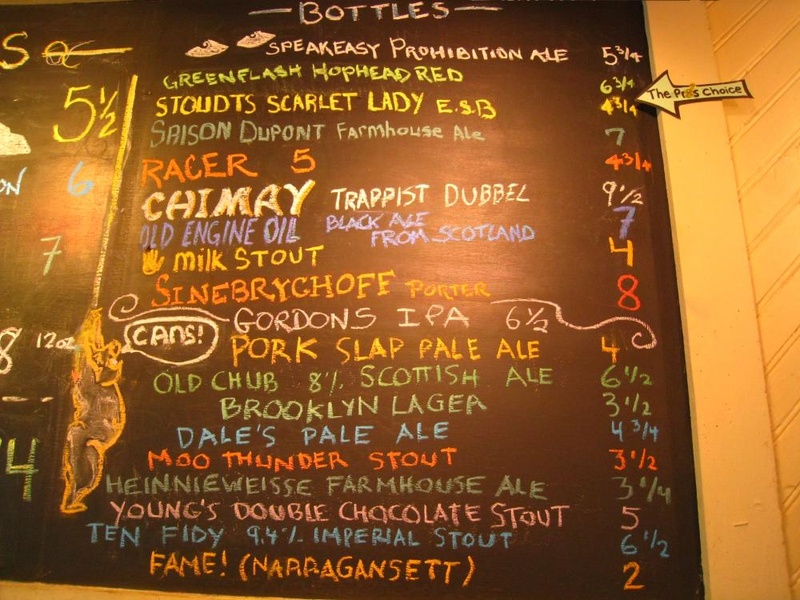 BOTTLES
SPEAKEASY PROHIBITION ALE 5 3/4
GREENFLASH HOPHEAD RED 6 3/4
The Pro's Choice
STOUDTS SCARLET LADY E.S.B 4 3/4
SAISON DUPONT Farmhouse Ale 7
RACER 5 4 3/4
CHIMAY TRAPPIST DUBBEL 9 1/2
OLD ENGINE OIL BLACK ALE FROM SCOTLAND 7
MILK STOUT 4
SINEBRYCHOFF PORTER 8
GORDONS IPA 6 1/2
CANS!
PORK SLAP PALE ALE 4
OLD CHUB 8% SCOTTISH ALE 6 1/2
BROOKLYN LAGER 3 1/2
DALE'S PALE ALE 4 3/4
MOO THUNDER STOUT 3 1/2
HEINNIEWEISSE FARMHOUSE ALE 3 1/4
YOUNG'S DOUBLE CHOCOLATE STOUT 5
TEN FIDY 9.4% IMPERIAL STOUT 6 1/2
FAME! (NARRAGANSETT) 2
S
5 1/2
ON 6
7
8 12oz
4